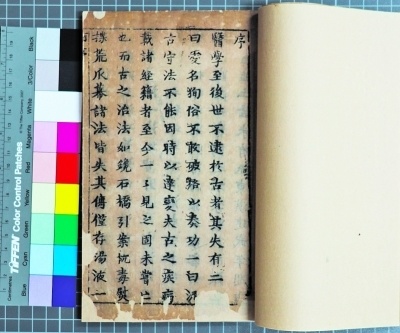 序
醫學至後世不逮於古者其失有二
曰愛名狥俗不敢破格以奏功一曰泥
古守法不能因時以達變夫古之疾病
載諸經籍者至今一一見之固未嘗亡
也而古之治法如鑱石撟引案扤毒熨
揲荒爪幕諸法皆失其傳僅存湯液一
TIFFEN Color Control Patches
Blue
Cyan
Green
Yellow
Red
Magenta
White
3/Color
Black